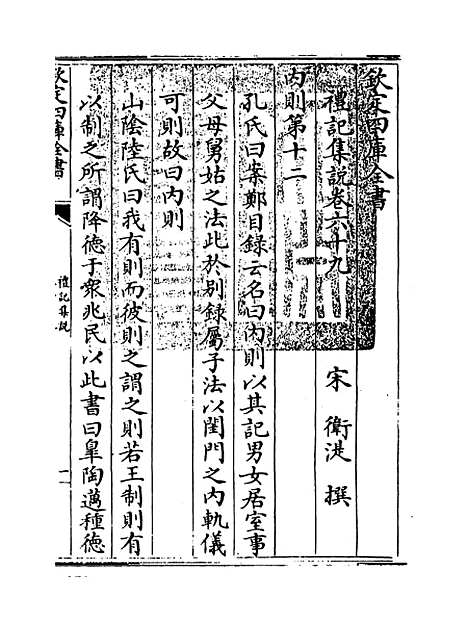 欽定四庫全書
禮記集說卷六十九
宋 衛湜 撰
內則第十二
孔氏曰案鄭目録云名曰內則以其記男女居室事
父母舅姑之法此於别録屬子法以閨門之內軌儀
可則故曰內則
山陰陸氏曰我有則而彼則之謂之則若王制則有
以制之所謂降德于衆兆民以此書曰臯陶邁種德
欽定四庫全書
禮記集說